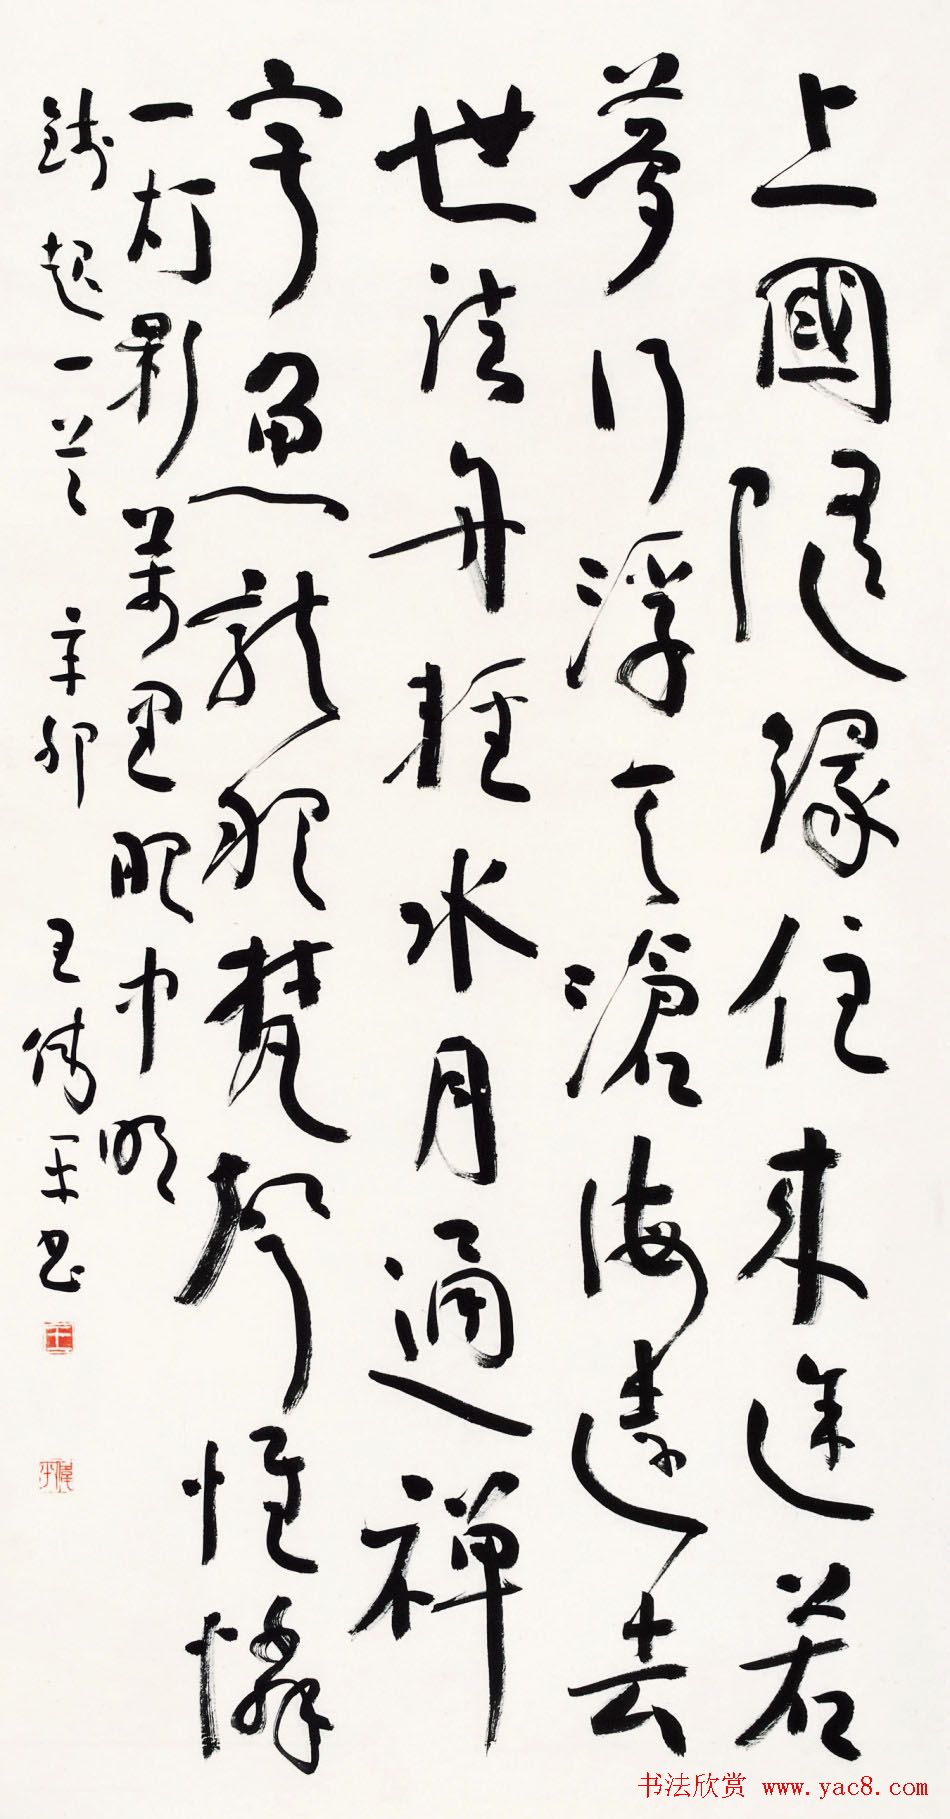 上國隨緣住來途若
夢行浮天滄海遠去
世法舟輕水月通禪
寂魚龍聽梵聲惟憐
一灯影萬里眼中明
錢起一首 辛卯 王偉平書
王
偉平
书法欣赏 www.yac8.com